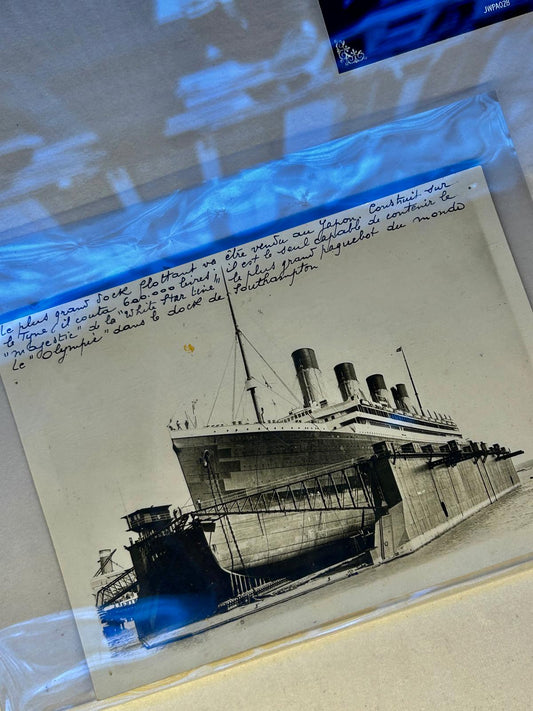 JWPA028
Le plus grand dock flottant va être vendu au Japon. Construit sur
la Tyne, il couta 600.000 livres; il est le seul capable de contenir le
"Majestic" de la "White Star Line", le plus grand paquebot du monde
Le "Olympic" dans le dock de Southampton